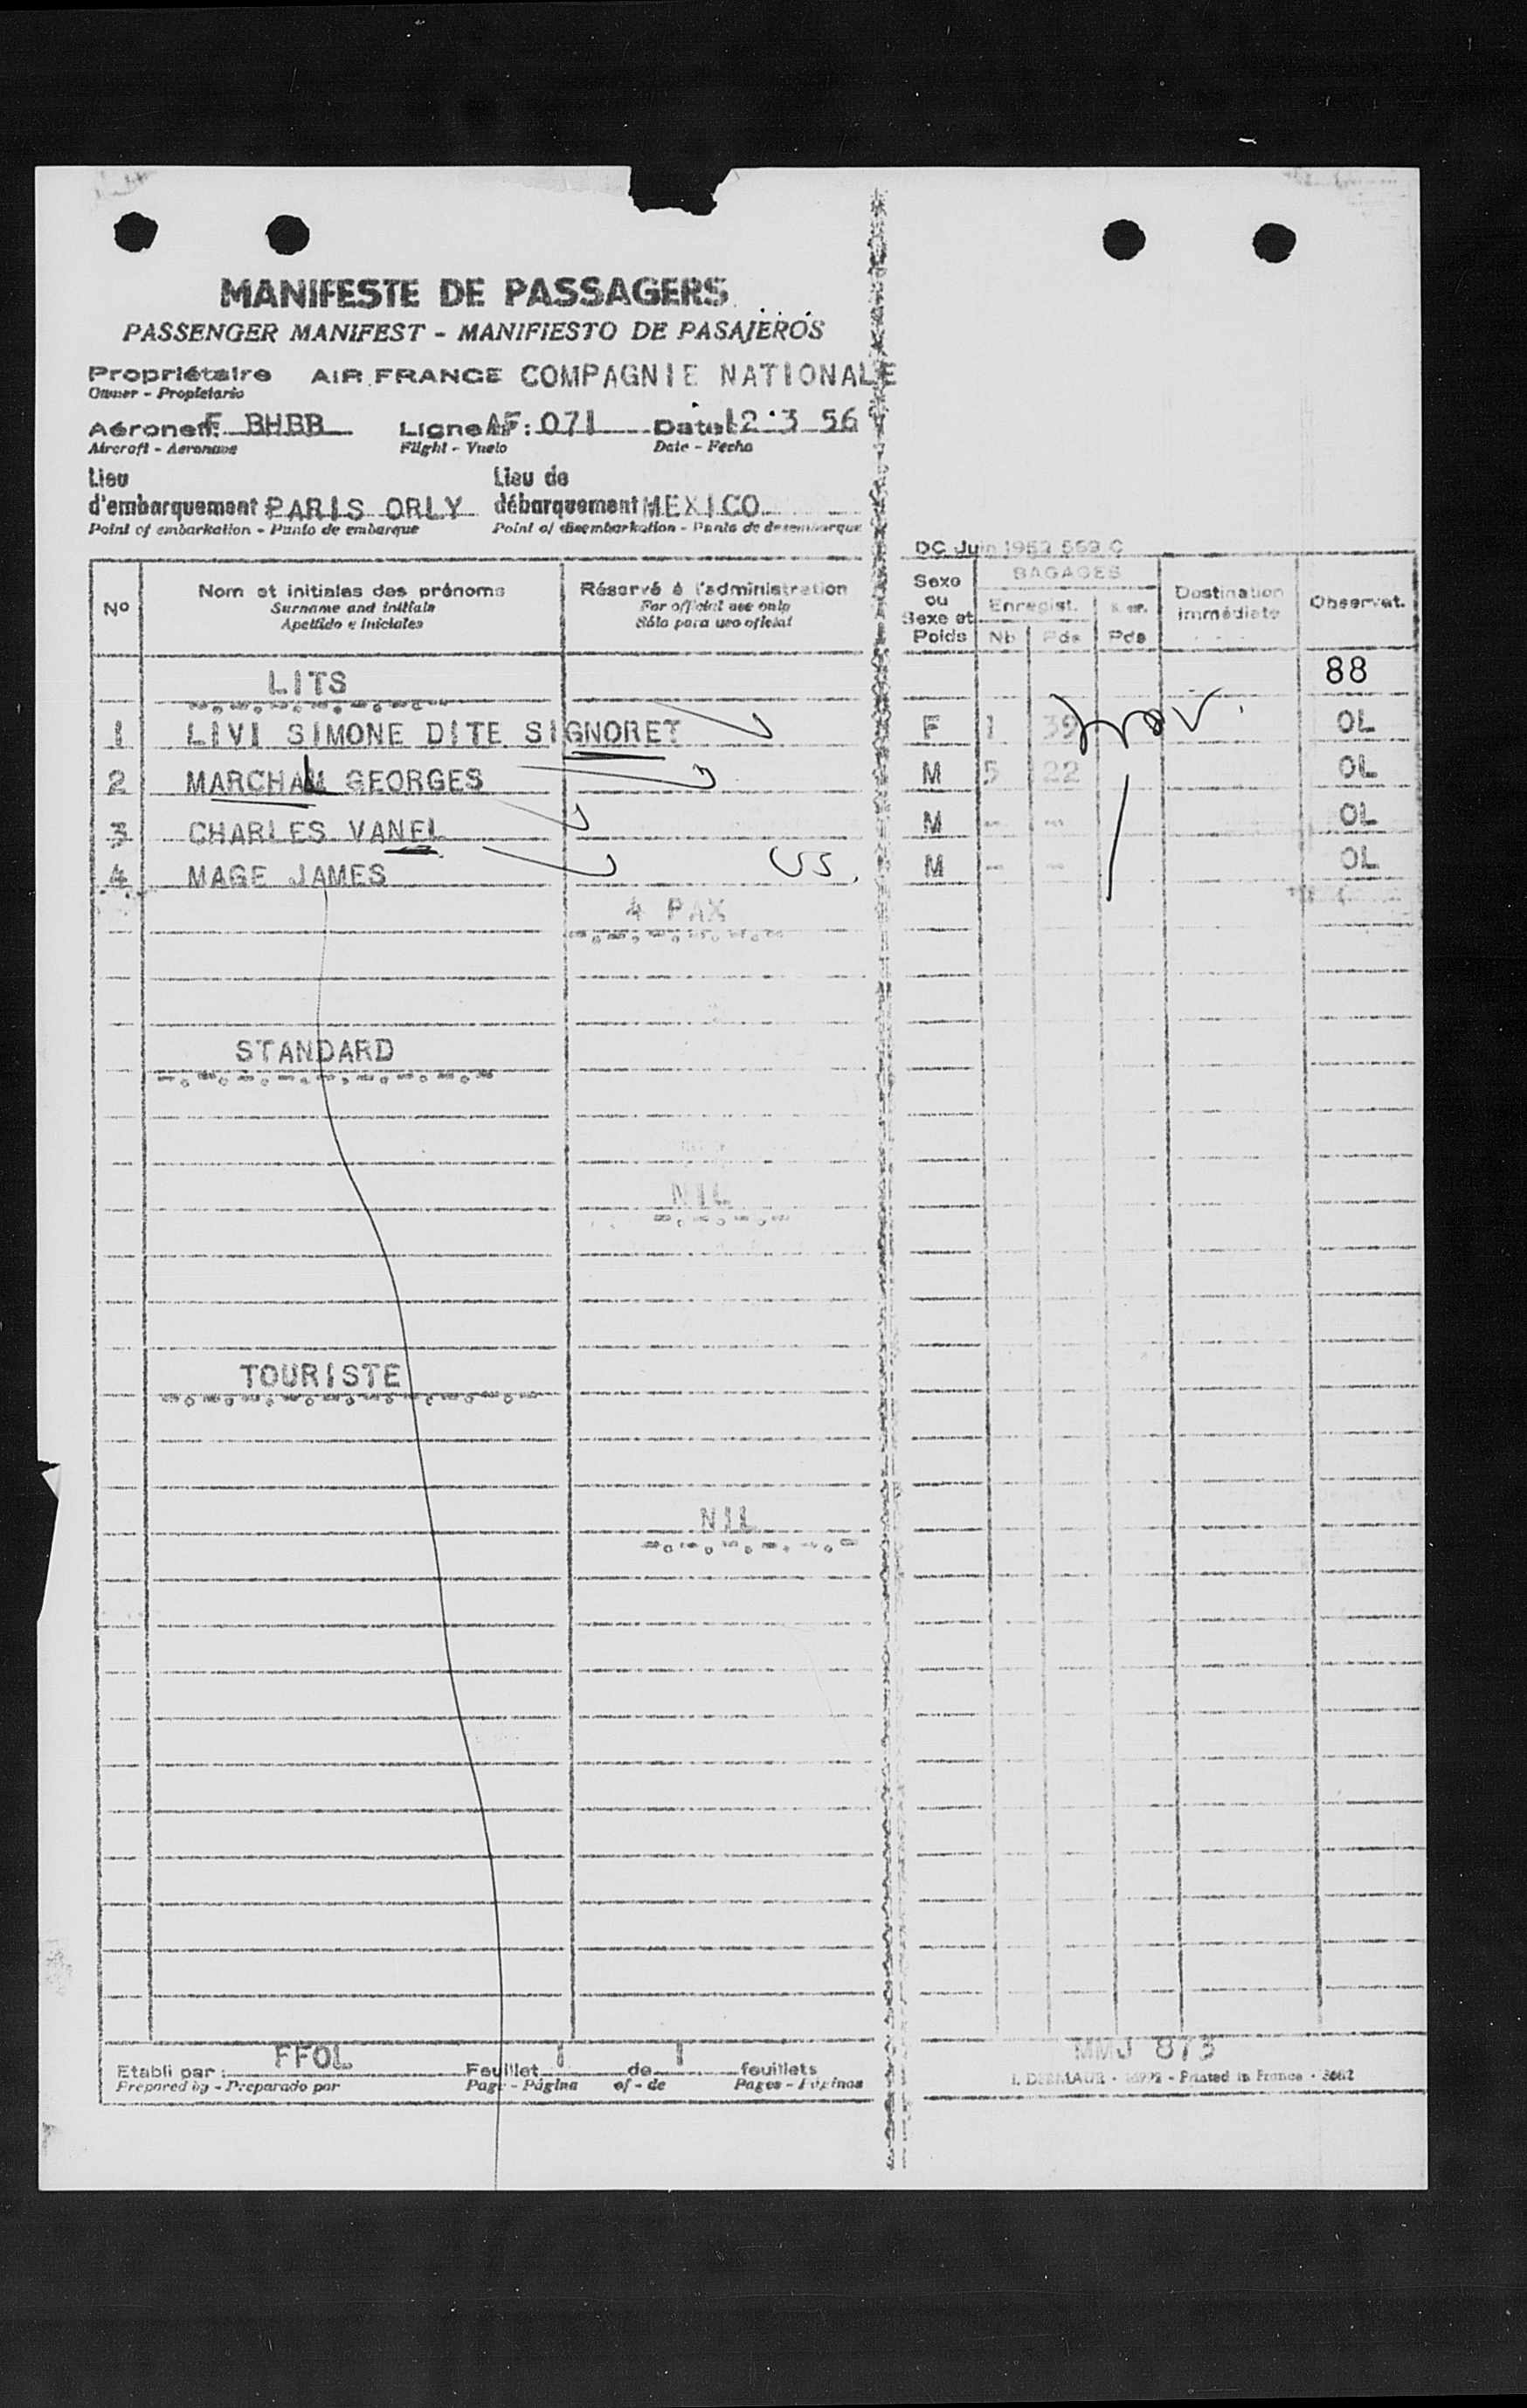 MANIFESTE DE PASSAGERS
PASSENGER MANIFEST - MANIFIESTO DE PASAJEROS
Propriétaire AIR FRANCE COMPAGNIE NATIONALE
Owner - Propietario
Aéronef: F BHBB Ligne AF: 071 Date 12 3 56
Aircraft - Aeronave Flight - Vuelo Date - Fecha
Lieu Lieu de
d'embarquement PARIS ORLY débarquement MEXICO
Point of embarkation - Punto de embarque Point of disembarkation - Punto de desembarque
DC Juin 1952 569 C
No Nom et initiales des prénoms Réservé à l'administration Sexe ou Sexe et Poids BAGAGES Destination immédiate Observat.
Surname and initials For official use only Enregist.
Apellido e iniciales Sólo para uso oficial Nb Pds Pds
LITS 88
1 LIVI SIMONE DITE SIGNORET F 1 39 OL
2 MARCHAL GEORGES M 5 22 OL
3 CHARLES VANEL M - - OL
4 MAGE JAMES US. M - - OL
4 PAX
STANDARD
NIL
TOURISTE
NIL
Etabli par: FFOL Feuillet 1 de 1 feuillets MMJ 873
Prepared by - Preparado por Page - Página of - de Pages - Páginas Printed in France